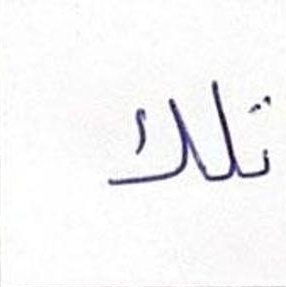 تلك